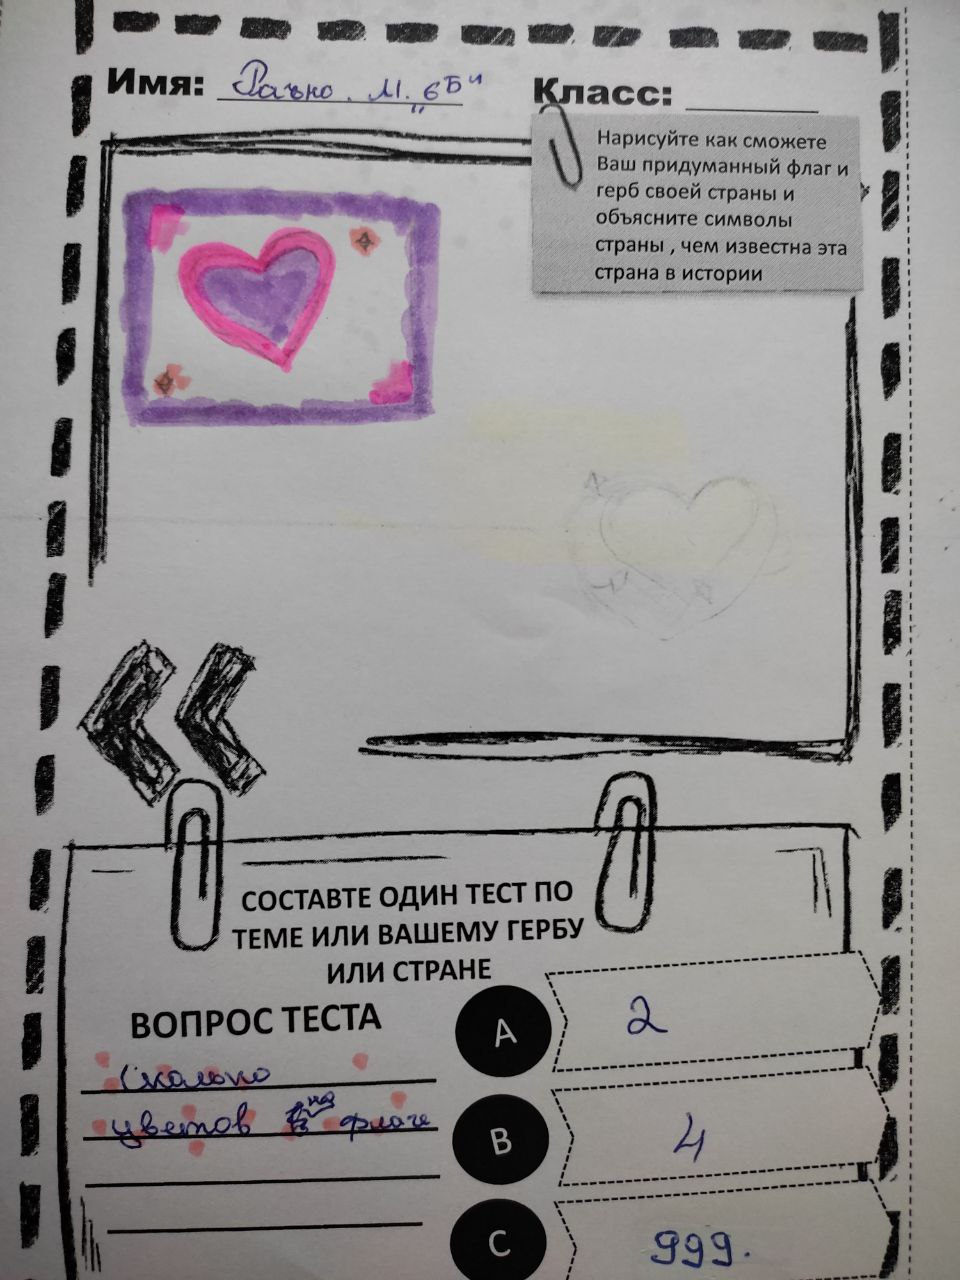 Имя: М. "6Б" Класс:
Нарисуйте как сможете
Ваш придуманный флаг и
герб своей страны и
объясните символы
страны , чем известна эта
страна в истории
СОСТАВТЕ ОДИН ТЕСТ ПО
ТЕМЕ ИЛИ ВАШЕМУ ГЕРБУ
ИЛИ СТРАНЕ
ВОПРОС ТЕСТА
Сколько
цветов на флаге
A 2
B 4
C 999.